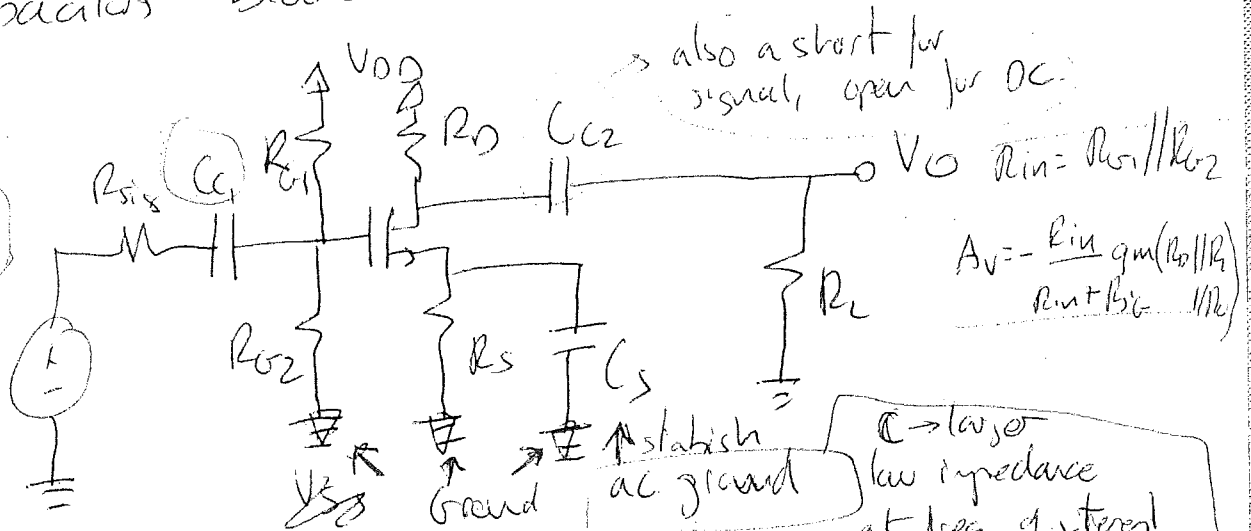 also a short for
signal, open for DC.
VDD
RD
CC2
Rsig
CC1
RG1
VO
Rin = RG1//RG2
Av = - Rin/(Rin+Rsig) gm(RD//RL
//Ro)
+
-
RG2
RS
CS
RL
VSS
Ground
establish
ac ground
C → larger
low impedance
at freq of interest